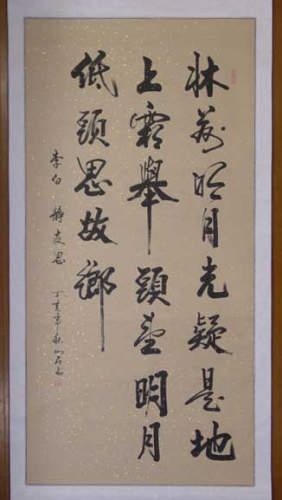 牀前明月光疑是地
上霜舉頭望明月
低頭思故鄉
李白 靜夜思 丁亥年秋